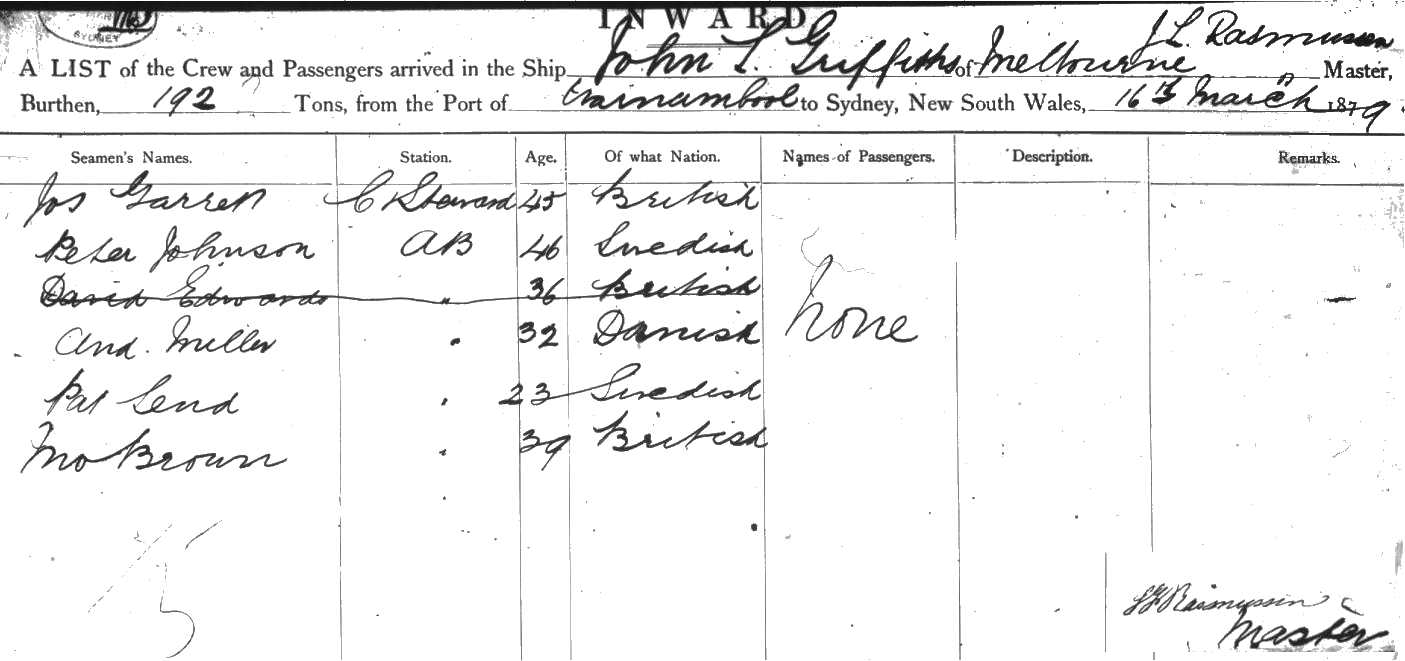 SYDNEY
INWARD
J L Rasmussen
A LIST of the Crew and Passengers arrived in the Ship John L Griffiths of Melbourne Master,
Burthen, 192 Tons, from the Port of to Sydney, New South Wales, 16th March 1879.
Seamen's Names. Station. Age. Of what Nation. Names of Passengers. Description. Remarks.
Jos Garrett C & Steward 45 British
Peter Johnson AB 46 Swedish
David Edwards " 36 British
And. Miller " 32 Danish None
Pat Lend " 23 Swedish
Jno Brown " 39 British
15
Rasmussen
Master